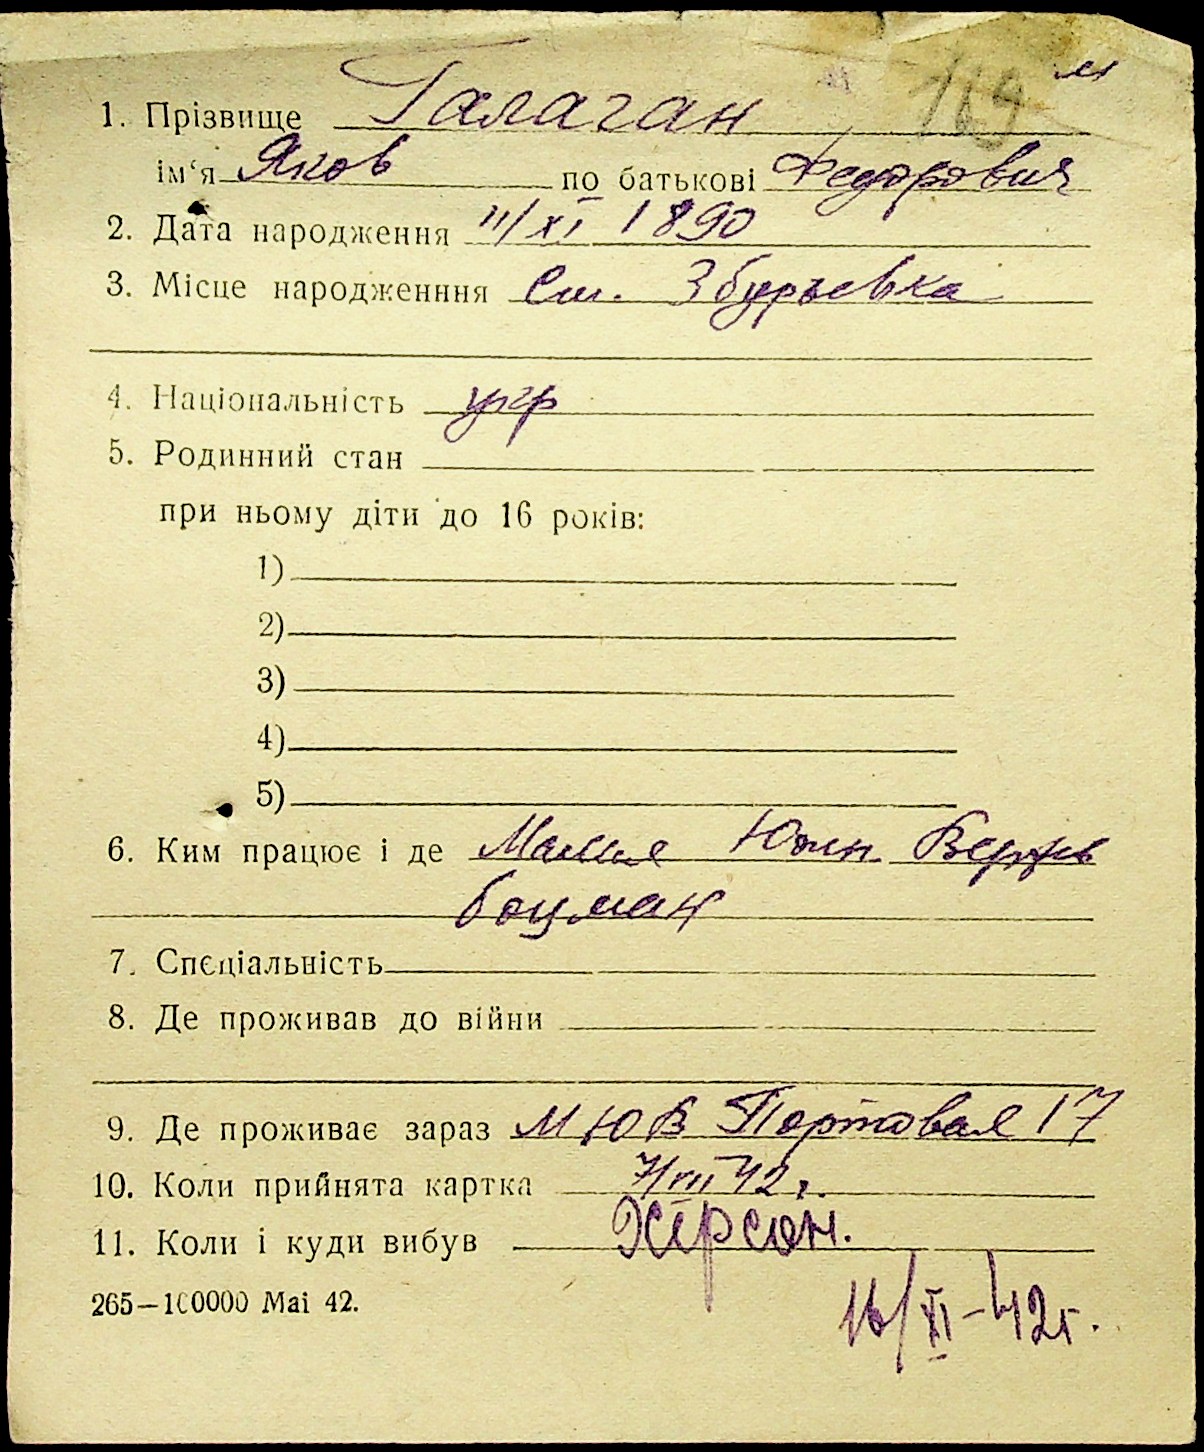 м
169
1. Прізвище Галаган
ім‘я Яков по батькові Федорович
2. Дата народження 11/XI 1890
3. Місце народженння Ст. Збурьевка
4. Національність укр
5. Родинний стан
при ньому діти до 16 років:
1)
2)
3)
4)
5)
6. Ким працює і де Южн. Верфь
боцман
7. Спєціальність
8. Де проживав до війни
9. Де проживає зараз М Ю В Портовая 17
10. Коли прийнята картка 7/VII 42 г.
11. Коли і куди вибув Херсон.
265—100000 Маі 42.
16/XI-42г.